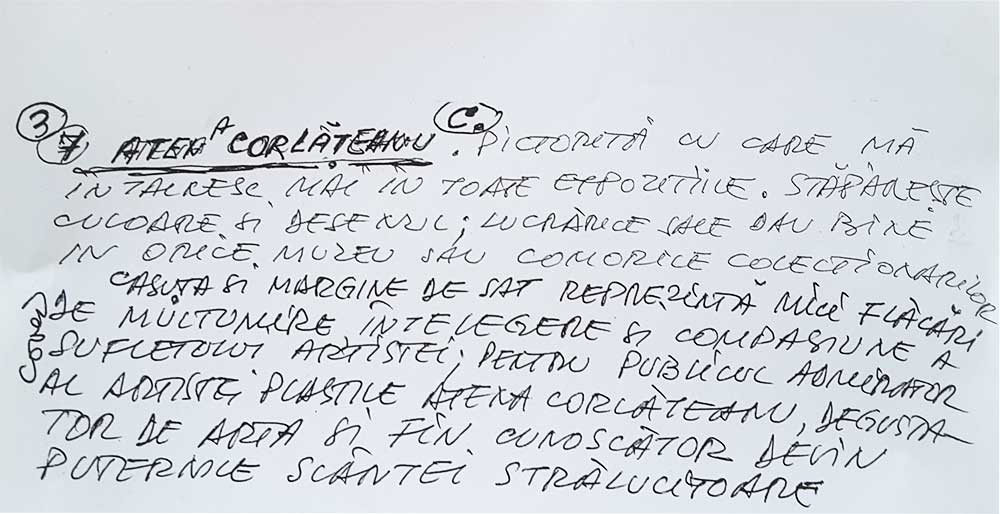 3 7 ATENA CORLĂȚEANU C. PICTORIȚĂ CU CARE MĂ
ÎNTÂLNESC MAI ÎN TOATE EXPOZIȚIILE. STĂPÂNEȘTE
CULOARE ȘI DESENUL; LUCRĂRILE SALE DAU BINE
IN ORICE MUZEU SAU COMORILE COLECȚIONARILOR
CĂSUȚA SI MARGINE DE SAT REPREZINTĂ MICI FLĂCĂRI
DE MULȚUMIRE ÎNȚELEGERE ȘI COMPASIUNE A
SUFLETULUI ARTISTEI; PENTRU PUBLICUL ADMIRATOR
AL ARTISTEI PLASTICE ATENA CORLĂȚEANU, DEGUSTA-
TOR DE ARTA ȘI FIN CUNOSCĂTOR DEVIN
PUTERNICE SCÂNTEI STRĂLUCITOARE